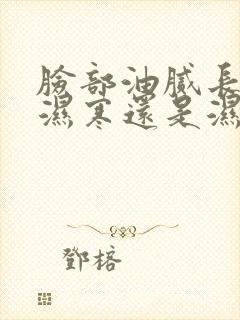 臉部油膩長
濕寒還是濕
鄧榕